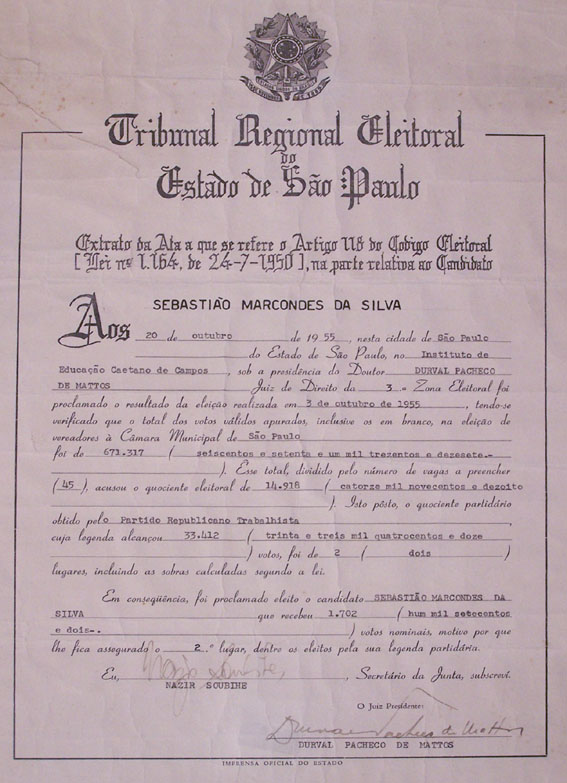 Tribunal Regional Eleitoral
do
Estado de São Paulo
Extrato da Ata a que se refere o Artigo 118 do Codigo Eleitoral
[Lei nº 1.164, de 24-7-1950], na parte relativa ao Candidato
SEBASTIÃO MARCONDES DA SILVA
Aos 20 de outubro de 1955, nesta cidade de São Paulo
do Estado de São Paulo, no Instituto de
Educação Caetano de Campos, sob a presidência do Doutor DURVAL PACHECO
DE MATTOS Juiz de Direito da 3.ª Zona Eleitoral foi
proclamado o resultado da eleição realizada em 3 de outubro de 1955, tendo-se
verificado que o total dos votos válidos apurados, inclusive os em branco, na eleição de
vereadores à Câmara Municipal de São Paulo
foi de 671.317 ( seiscentos e setenta e um mil trezentos e dezesete.-
). Esse total, dividido pelo número de vagas a preencher
(45), acusou o quociente eleitoral de 14.918 ( catorze mil novecentos e dezoito
). Isto pôsto, o quociente partidário
obtido pelo Partido Republicano Trabalhista,
cuja legenda alcançou 33.412 ( trinta e treis mil quatrocentos e doze
) votos, foi de 2 ( dois )
lugares, incluindo as sobras calculadas segundo a lei.
Em conseqüência, foi proclamado eleito o candidato SEBASTIÃO MARCONDES DA
SILVA que recebeu 1.702 ( hum mil setecentos
e dois-. ) votos nominais, motivo por que
lhe fica assegurado o 2.º lugar, dentre os eleitos pela sua legenda partidária.
Eu, , Secretário da Junta, subscreví.
NAZIR SOUBIHE
O Juiz Presidente:
Durval Pacheco de Mattos
DURVAL PACHECO DE MATTOS
IMPRENSA OFICIAL DO ESTADO